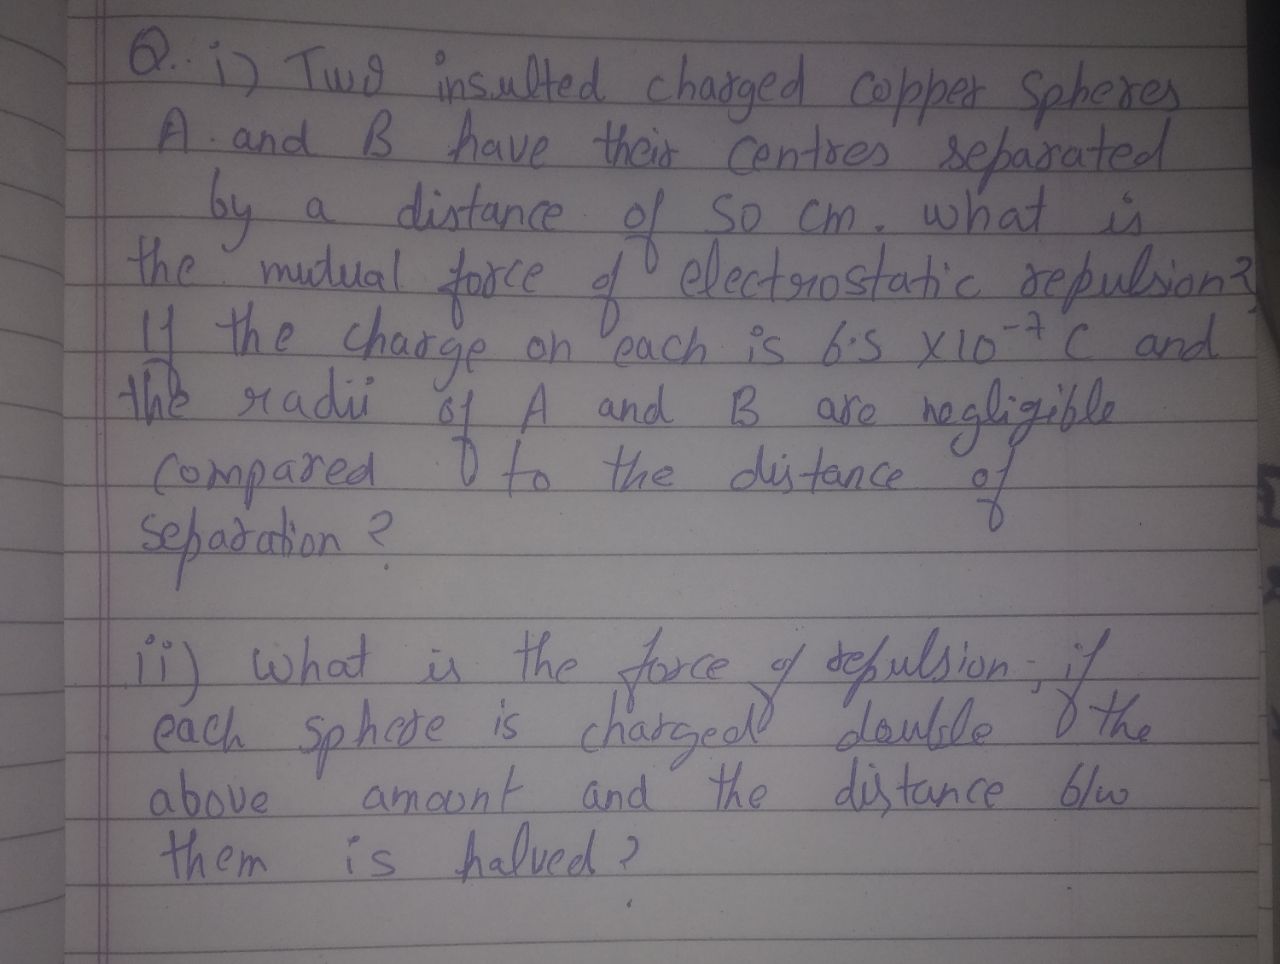 Q. i) Two insulted charged copper spheres
A and B have their centres separated
by a distance of 50 cm. what is
the mutual force of electrostatic repulsion?
If the charge on each is 6.5 x10⁻⁷ C and
the radii of A and B are negligible
compared to the distance of
separation?
ii) What is the force of repulsion, if
each sphere is charged double the
above amount and the distance b/w
them is halved?